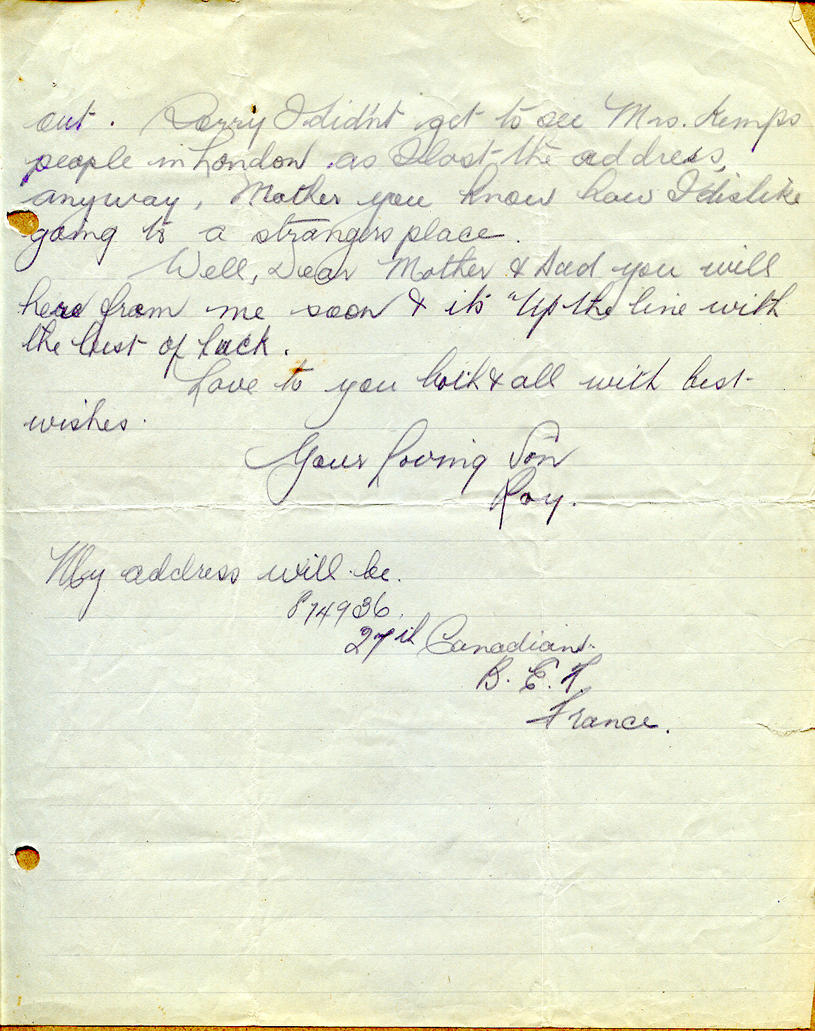 out. Sorry I didn't get to see Mrs. Kemps
people in London as I lost the address,
anyway, Mother you know how I dislike
going to a strangers place.
Well, Dear Mother & Dad you will
hear from me soon & it's "Up the line with
the best of luck.
Love to you both & all with best
wishes.
Your Loving Son
Roy.
My address will be.
874936.
27th Canadians.
B. E. F.
France.